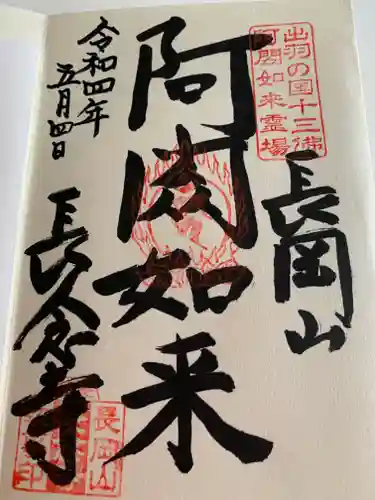 出羽の国十三佛
阿閦如来霊場
長岡山
阿閦如来
令和四年
五月四日
長念寺
長岡山